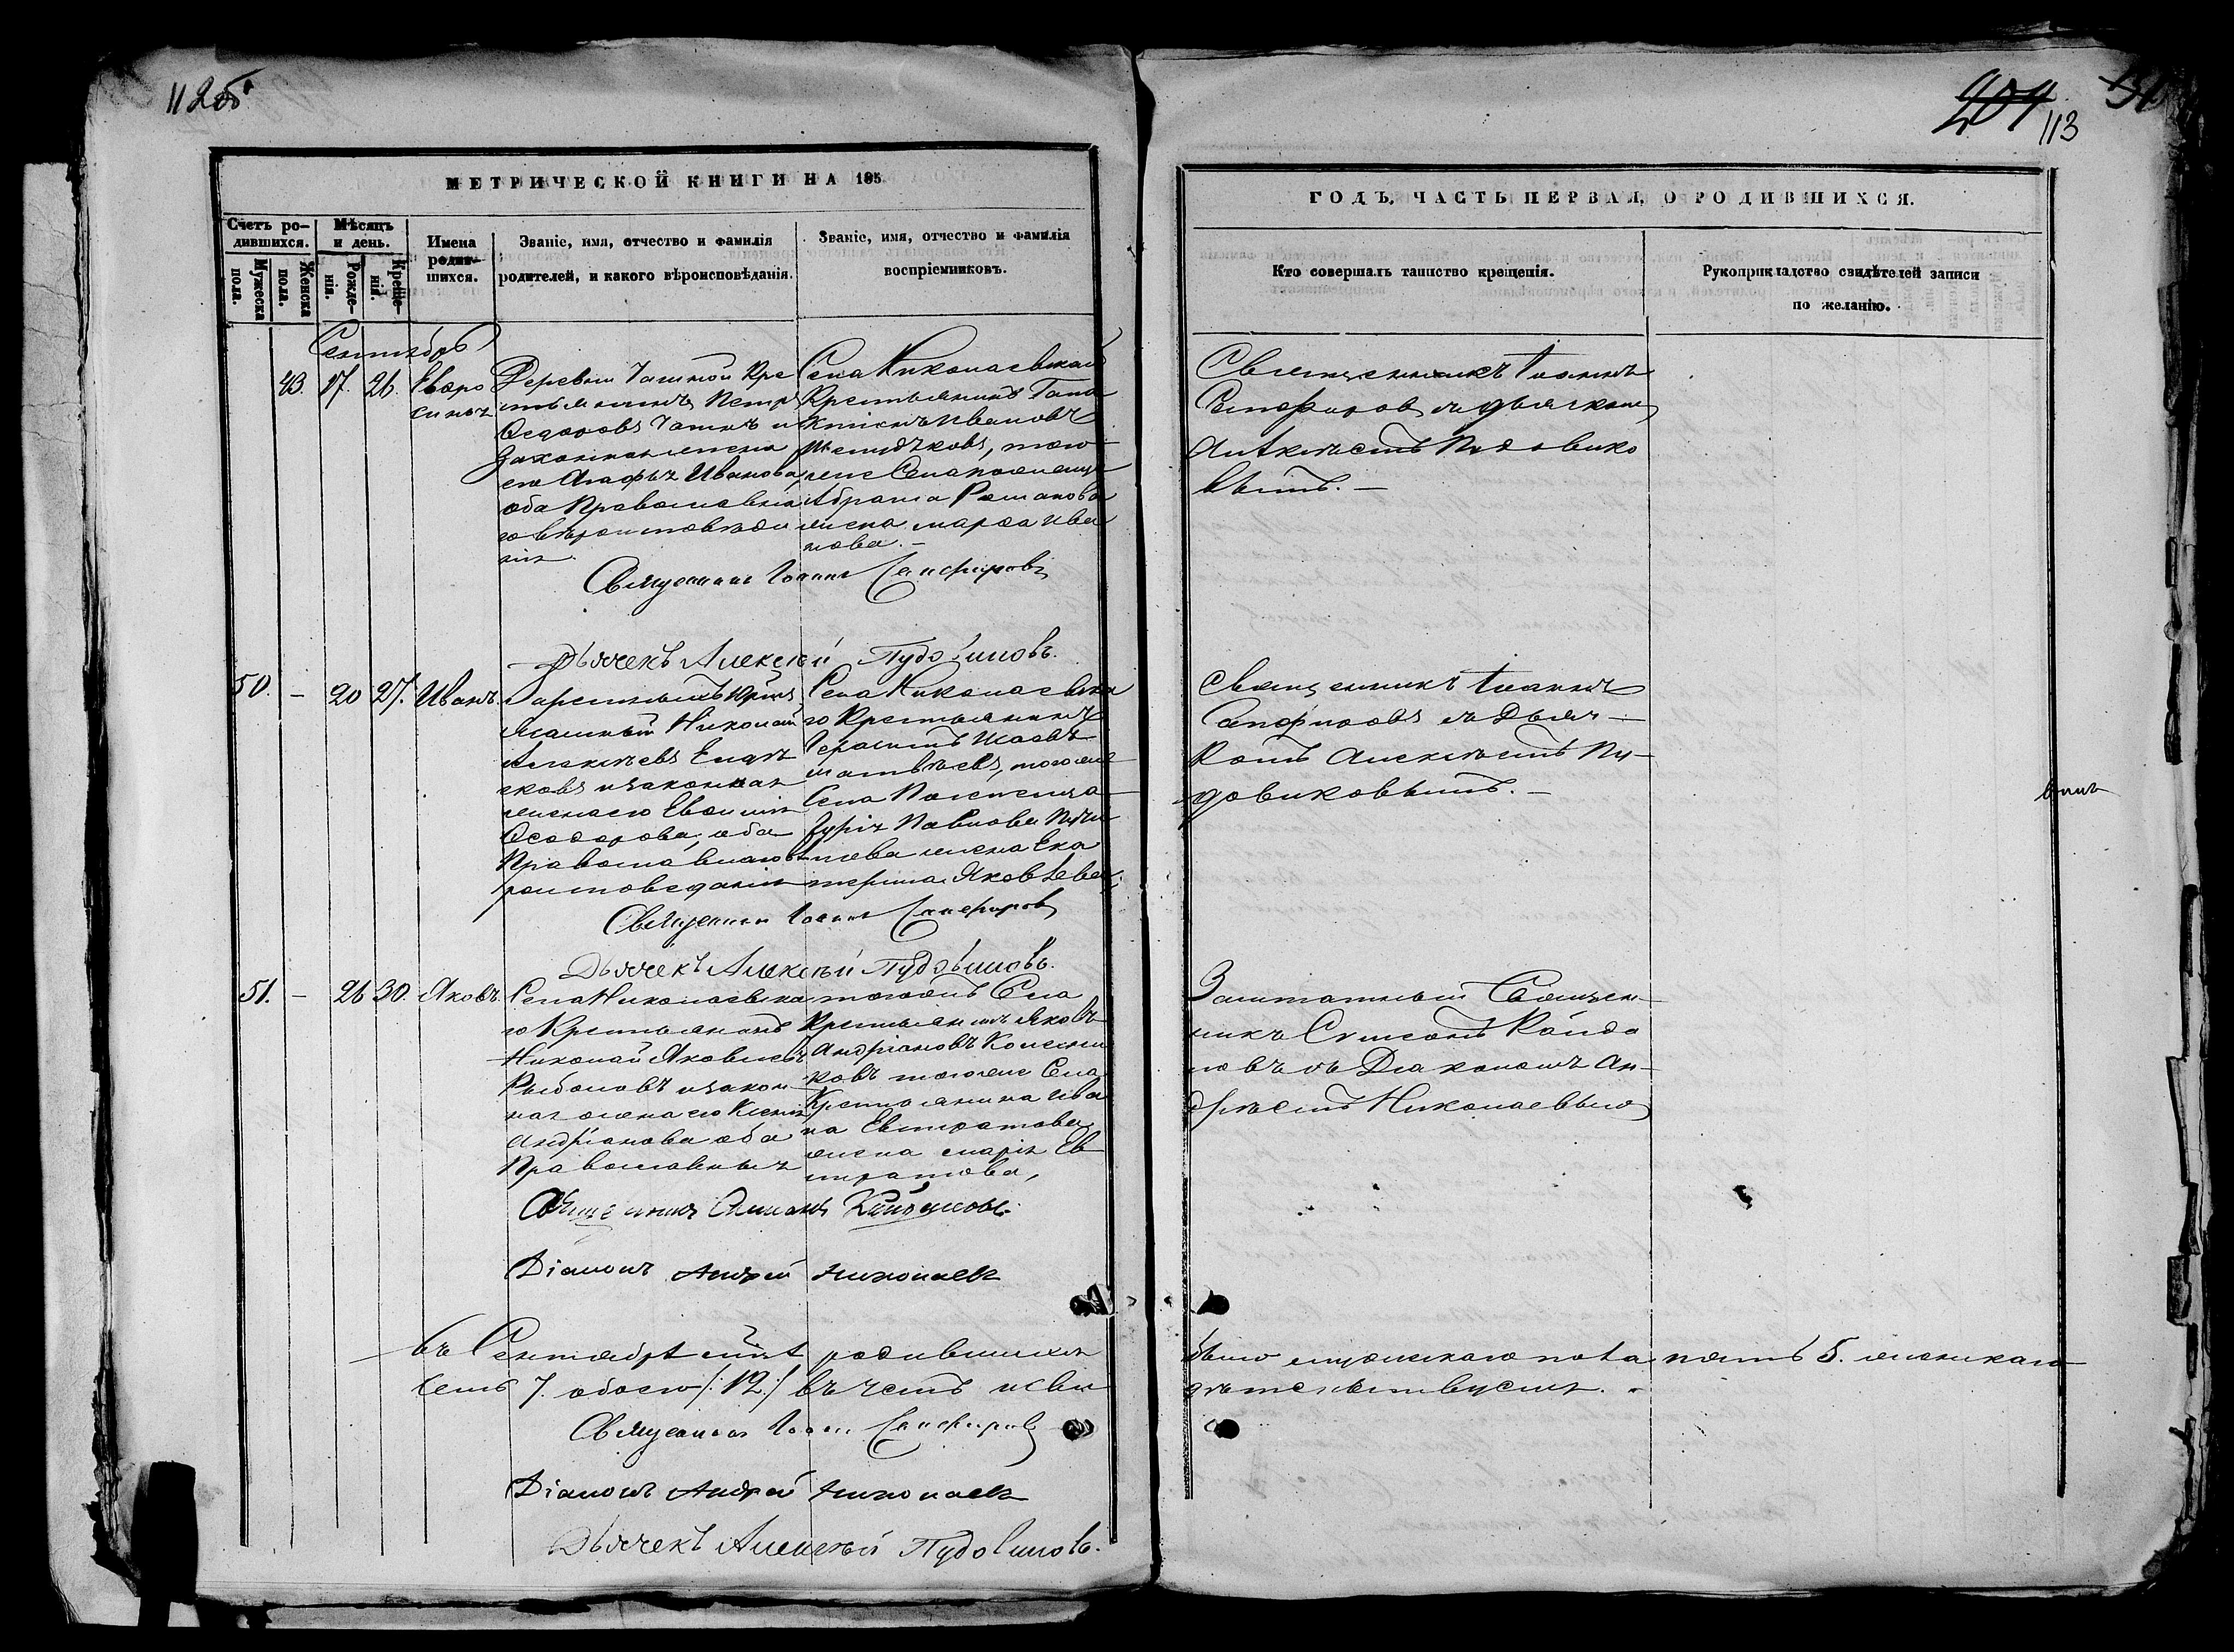 112об
МЕТРИЧЕСКОЙ КНИГИ НА 185
Счетъ ро-
дившихся.
Мужеска
пола.
Женска
пола.
Мѣсяцъ
и день.
Рожде-
нія.
Креще-
нія.
Имена
родив-
шихся.
Званіе, имя, отчество и фамилія
родителей, и какого вѣроисповѣданія.
Званіе, имя, отчество и фамилія
воспріемниковъ.
Сентябрь
43. 17. 26. Евро
синья
Деревни Кре
стьянинъ Петръ
Ѳедоровъ и
законная жена
его Агафья Иванова
оба Православна
го вѣроисповѣда
нія
Села Николаевскаго
Крестьянинъ
Ивановъ
того
же Села помѣщи
Абрама Романова
жена марѳа Ива
нова. –
Священникъ Іоаннъ Сапфировъ
Дьячекъ Алексѣй Пудовиковъ.
50. – 20 27. Иванъ.
Николай
Алексѣевъ
ковъ и законная
жена его Евѳимія
Ѳеодорова, оба
Православнаго вѣ
роисповеданія
Села Николаевска
го Крестьянинъ
Герасимъ
матвѣевъ, того же
Села
Павлова
жена Ека
терина Яковлева.
Священникъ Іоаннъ Сапфировъ
Дьячекъ Алексѣй Пудовиковъ.
51. – 26 30. Яковъ.
Села Николаевска
го Крестьянинъ
Николай Яковлевъ
Рыбаловъ и закон
ная жена его Ксенія
Андріанова оба
Православныя
тогожъ Села
Крестьянинъ Яковъ
Андріановъ
ковъ того же Села
Крестьянина Ива
на Евстратова
жена марія Ев
стратова,
Священникъ Симеонъ
Діаконъ Андрей Николаевъ
Въ Сентябрѣ мцѣ родившихся
семь 7. обоего /:12:/ въ чемъ и сви
Священникъ Іоаннъ Сапфировъ
Діаконъ Андрей Николаевъ
Дьячекъ Алексѣй Пудовиковъ.
204
113
ГОДЪ, ЧАСТЬ ПЕРВАЯ, О РОДИВШИХСЯ.
Кто совершалъ таинство крещенія.
Рукоприкладство свидѣтелей записи
по желанію.
Священникъ Іоаннъ
Сапфировъ съ дьячкомъ
Алексѣемъ Пудовико
вымъ. –
Священникъ Іоаннъ
Сапфировъ съ Дьяч-
комъ Алексѣемъ Пу-
довиковымъ. –
Заштатный Священ-
никъ Симеонъ
съ Діакономъ Ан-
дрѣемъ Николаевымъ
было мужескаго пола пять 5. женскаго
дѣтельствуемъ.